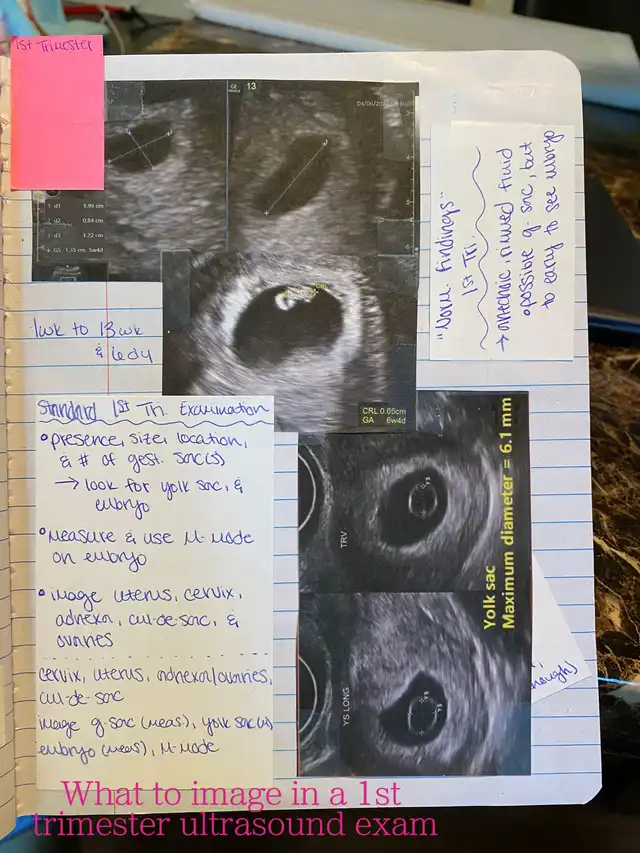 1st Trimester
GE
Venue
13
1 d1 1.99 cm
2 d2 0.84 cm
3 d3 1.22 cm
GS 1.35 cm 5w4d
CRL 0.65cm
GA 6w4d
"Norm findings"
1st Tri.
→ antchoic, rimmed fluid
• possible g. sac, but
to early to see embryo
1wk to 13wk
& 6edy
Standard 1st Tri. Examination
• presence, size, location,
& # of gest. sac(s)
→ look for yolk sac, &
embryo
• measure & use M-mode
on embryo
• image uterus, cervix,
adnexa, cul-de-sac, &
ovaries
cervix, uterus, adnexa/ovaries,
cul-de-sac
image g-sac (meas.), yolk sac(s)
embryo (meas), M-mode
TRV
YS LONG
Yolk sac
Maximum diameter = 6.1 mm
What to image in a 1st
trimester ultrasound exam